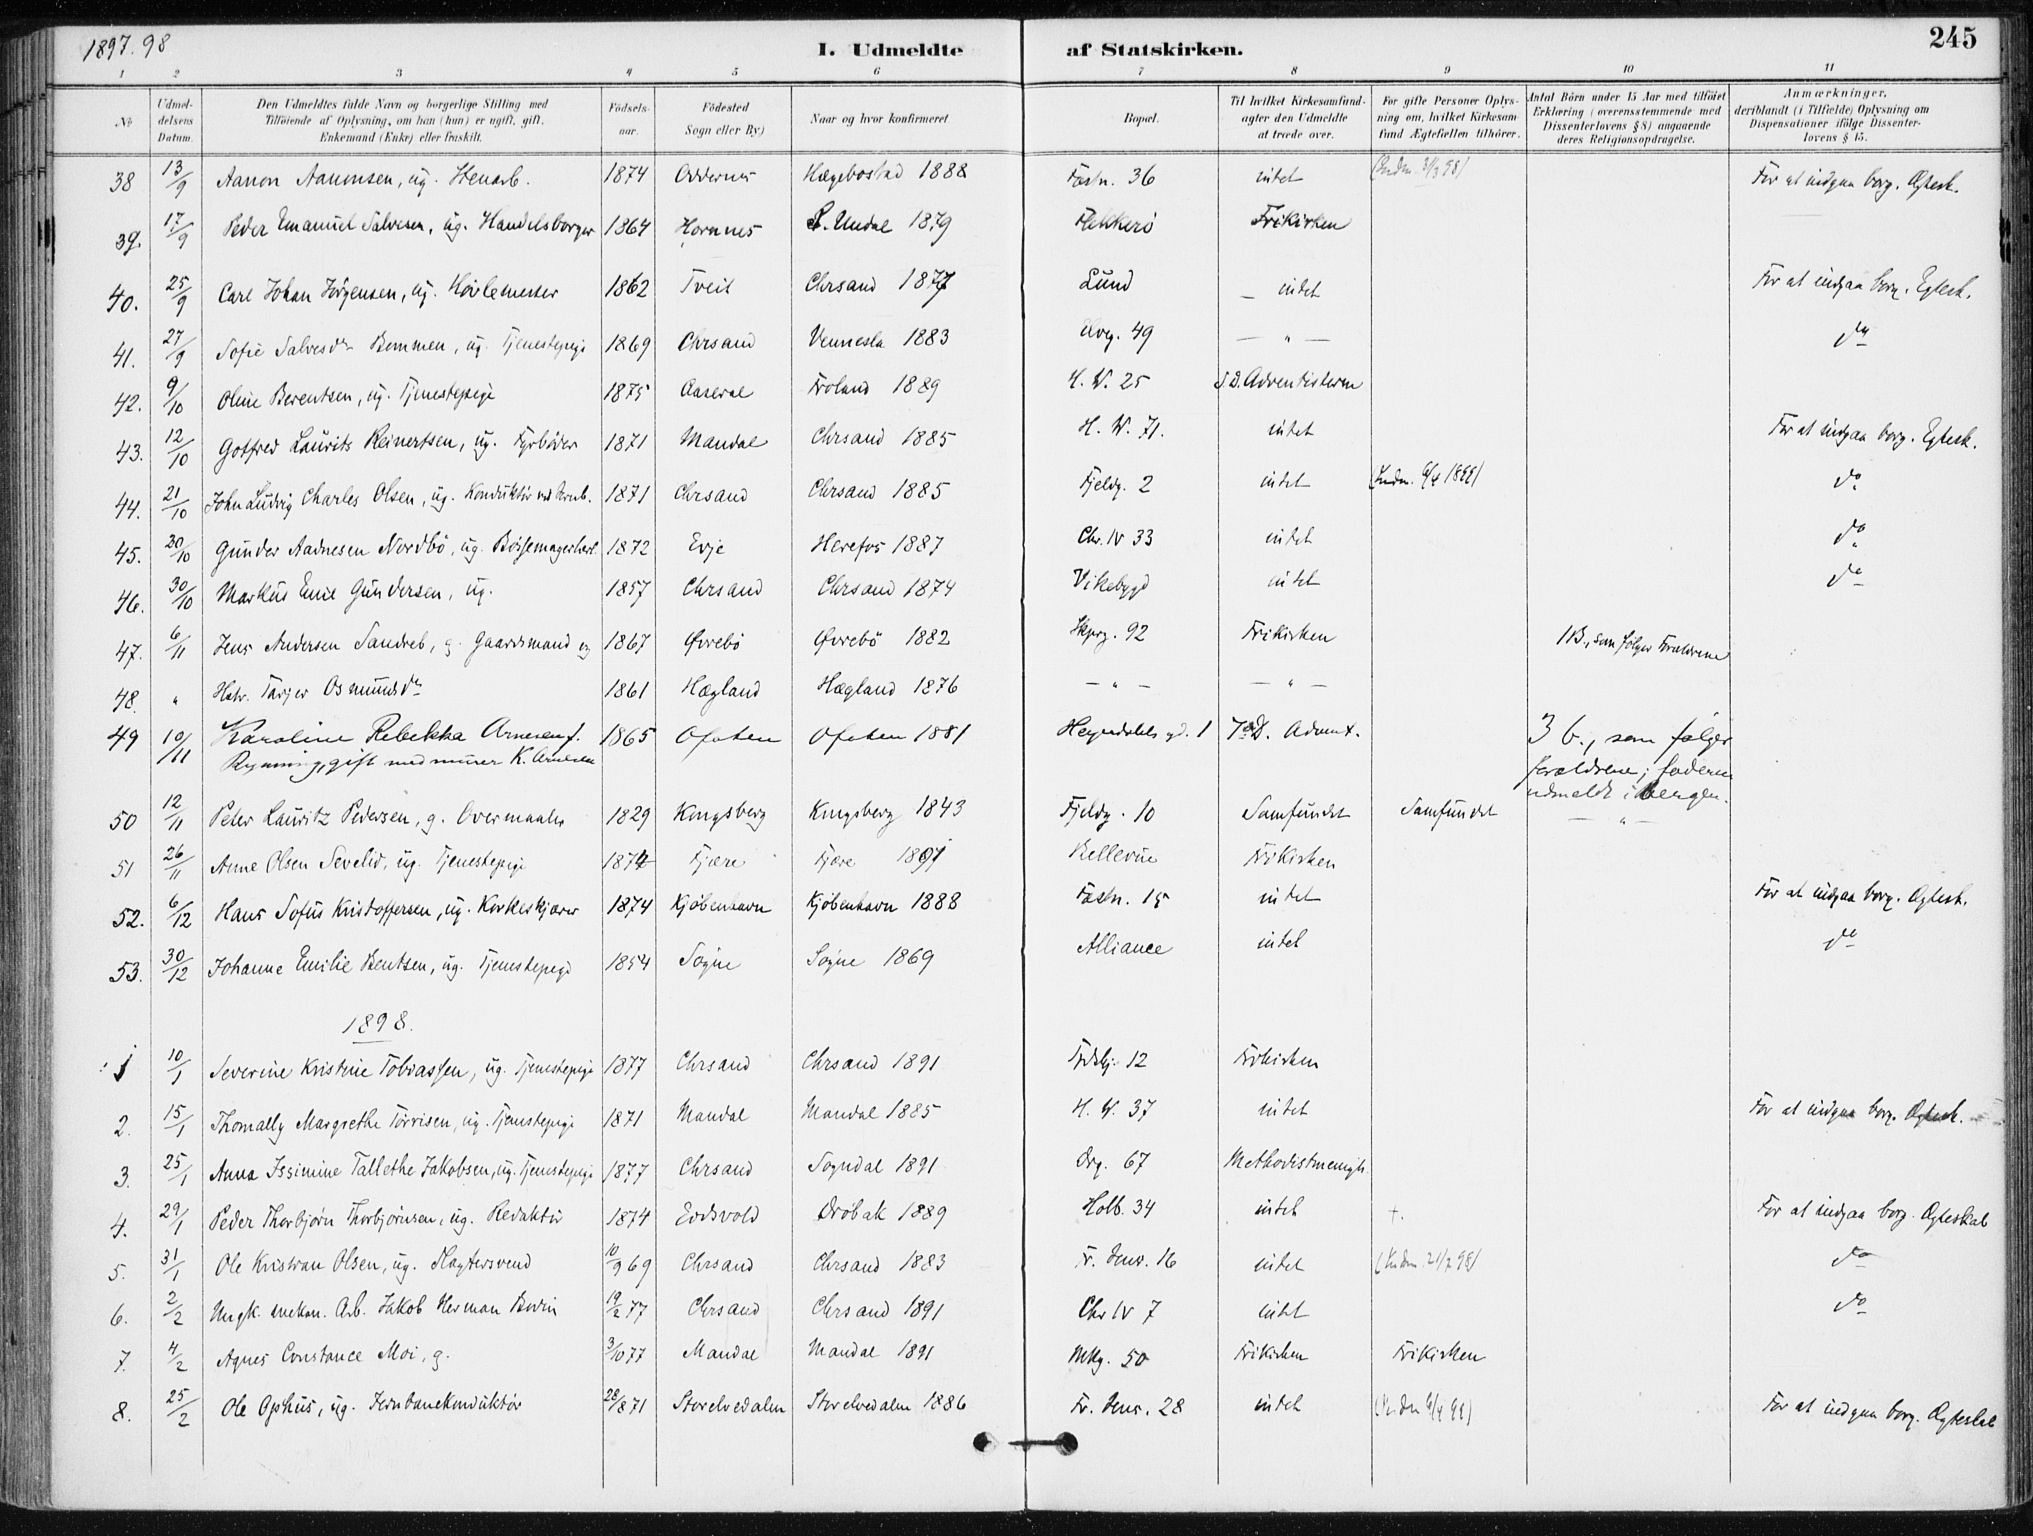 1897.98
I. Udmeldte af Statskirken.
245
1 2 3 4 5 6 7 8 9 10 11
No
Udmeldelsens Datum.
Den Udmeldtes fulde Navn og borgerlige Stilling med Tilføiende af Oplysning, om han (hun) er ugift, gift, Enkemand (Enke) eller fraskilt.
Födselsaar.
Födested Sogn eller By)
Naar og hvor konfirmeret
Bopæl.
Til hvilket Kirkesamfund agter den Udmeldte at træde over.
For gifte Personer Oplysning om, hvilket Kirkesamfund Ægtefællen tilhörer.
Antal Börn under 15 Aar med tilföiet Erklæring (overensstemmende med Dissenterlovens § 8) angaaende deres Religionsopdragelse.
Anmærkninger, deriblandt (i Tilfælde) Oplysning om Dispensationer ifölge Dissenterlovens § 15.
38 13/9 Aanon Aanonsen, ug. Stenarb. 1874 Oddernes Hægebostad 1888 Fæstn. 36 intet For at indgaa borg. Ægtesk.
39. 17/9 Peder Emanuel Salvesen, ug. Handelsborger 1864 Hornnes S. Undal 1879 Flekkerö Frikirken
40. 25/9 Carl Johan Jörgensen, ug. Hövlemester 1862 Tveit Chrsand 1877 Lund intet For at indgaa borg. Egtesk.
41. 27/9 Sofie Salvesdr Bommen, ug. Tjenestepige 1869 Chrsand Vennesla 1883 Elvg. 49 — " — do
42. 9/10 Oline Berentsen, ug. Tjenestepige 1875 Aaseral Froland 1889 H. W. 25 S.D. Adventisterne
43. 12/10 Gotfred Laurits Reinertsen, ug. Fyrböder 1871 Mandal Chrsand 1885 H. W. 71. intet For at indgaa borg. Egtesk.
44. 21/10 John Ludvig Charles Olsen, ug. Konduktör ved Jernb. 1871 Chrsand Chrsand 1885 Fjeldg. 2 intet do
45. 30/10 Gunder Aadnesen Nordbö, ug. 1872 Evje Herefos 1887 Chr. IV 33 intet do
46. 30/10 Markus Emil Gundersen, ug. 1857 Chrsand Chrsand 1874 Vikebygd intet do
47. 6/11 Jens Andersen Sandreb, g. Gaardmand og 1867 Øvrebö Øvrebö 1882 92 Frikirken 1 B., som følger Forældrene
48. " Hstr. Tarjer Osmundsdr 1861 Hægland Hægland 1876 — " — — " —
49 10/11 Karoline Rebekka Arnesen f.
Rynning, gift med murer K. Arnesen 1865 Ofoten Ofoten 1881 1 7de D. Advent. 3 b., som følger
forældrene; faderen
udmeldt i Bergen.
50 12/11 Peter Lauritz Pedersen, g. Overmaaler 1829 Kongsberg Kongsberg 1843 Fjeldg. 10 Samfundet Samfundet — " —
51 26/11 Anne Olsen Sevelid, ug. Tjenestepige 1874 Fjære Fjære 1891 Bellevue Frikirken
52. 6/12 Hans Sofus Kristoffersen, ug. Korkeskjærer 1874 Kjöbenhavn Kjöbenhavn 1888 Fæstn. 15 intet For at indgaa borg. Ægtesk.
53. 30/12 Johanne Emilie Bentsen, ug. Tjenestepige 1854 Sögne Sögne 1869 Alliance intet do
1898.
1 10/1 Severine Kristine Tobiassen, ug. Tjenestepige 1877 Chrsand Chrsand 1891 12 Frikirken
2. 15/1 Thomally Margrethe Törrisen, ug. Tjenestepige 1871 Mandal Mandal 1885 H. W. 37 intet For at indgaa borg. Ægtesk.
3. 25/1 Anna Issimine Tallethe Jakobsen, ug. Tjenestepige 1877 Chrsand Sogndal 1891 Drg. 67 Methodistmenigh.
4. 29/1 Peder Thorbjörn Thorbjörnsen, ug. Redaktör 1874 Eidsvold Dröbak 1889 Holb. 34 intet +. For at indgaa borg. Ægteskab
5. 31/1 Ole Kristian Olsen, ug. Slagtersvend 10/9 69 Chrsand Chrsand 1883 16 intet do
6. 2/2 Ungk. mekan. Arb. Jakob Herman Bodin 19/2 77 Chrsand Chrsand 1891 Chr IV 7 intet do
7. 4/2 Agnes Constance Moi, g. 3/10 77 Mandal Mandal 1891 Mkg. 50 Frikirken Frikirken
8. 25/2 Ole Ophus, ug. Jernbanekonduktör 28/8 71 Storelvedalen Storelvedalen 1886 28 intet For at indgaa borg. Ægteskab